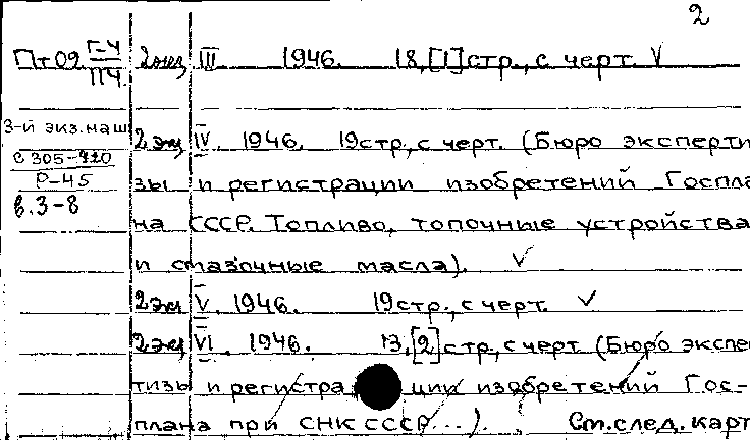 2
Пт09 Г-4/П4. 2экз III 1946. 18,[1]стр., с черт. V
3-й экз. наш
2экз IV. 1946. 19стр., с черт. (Бюро эксперти
с 305-920
Р-45
зы и регистрации изобретений Госпла
в.3-8
на СССР. Топливо, топочные устройства
и смазочные масла). V
2экз V. 1946. 19стр., с черт. V
2экз VI. 1946. 13,[2]стр., с черт (Бюро экспе
тизы и регистра ции изобретений Гос-
плана при СНК СССР...). См.след.карт